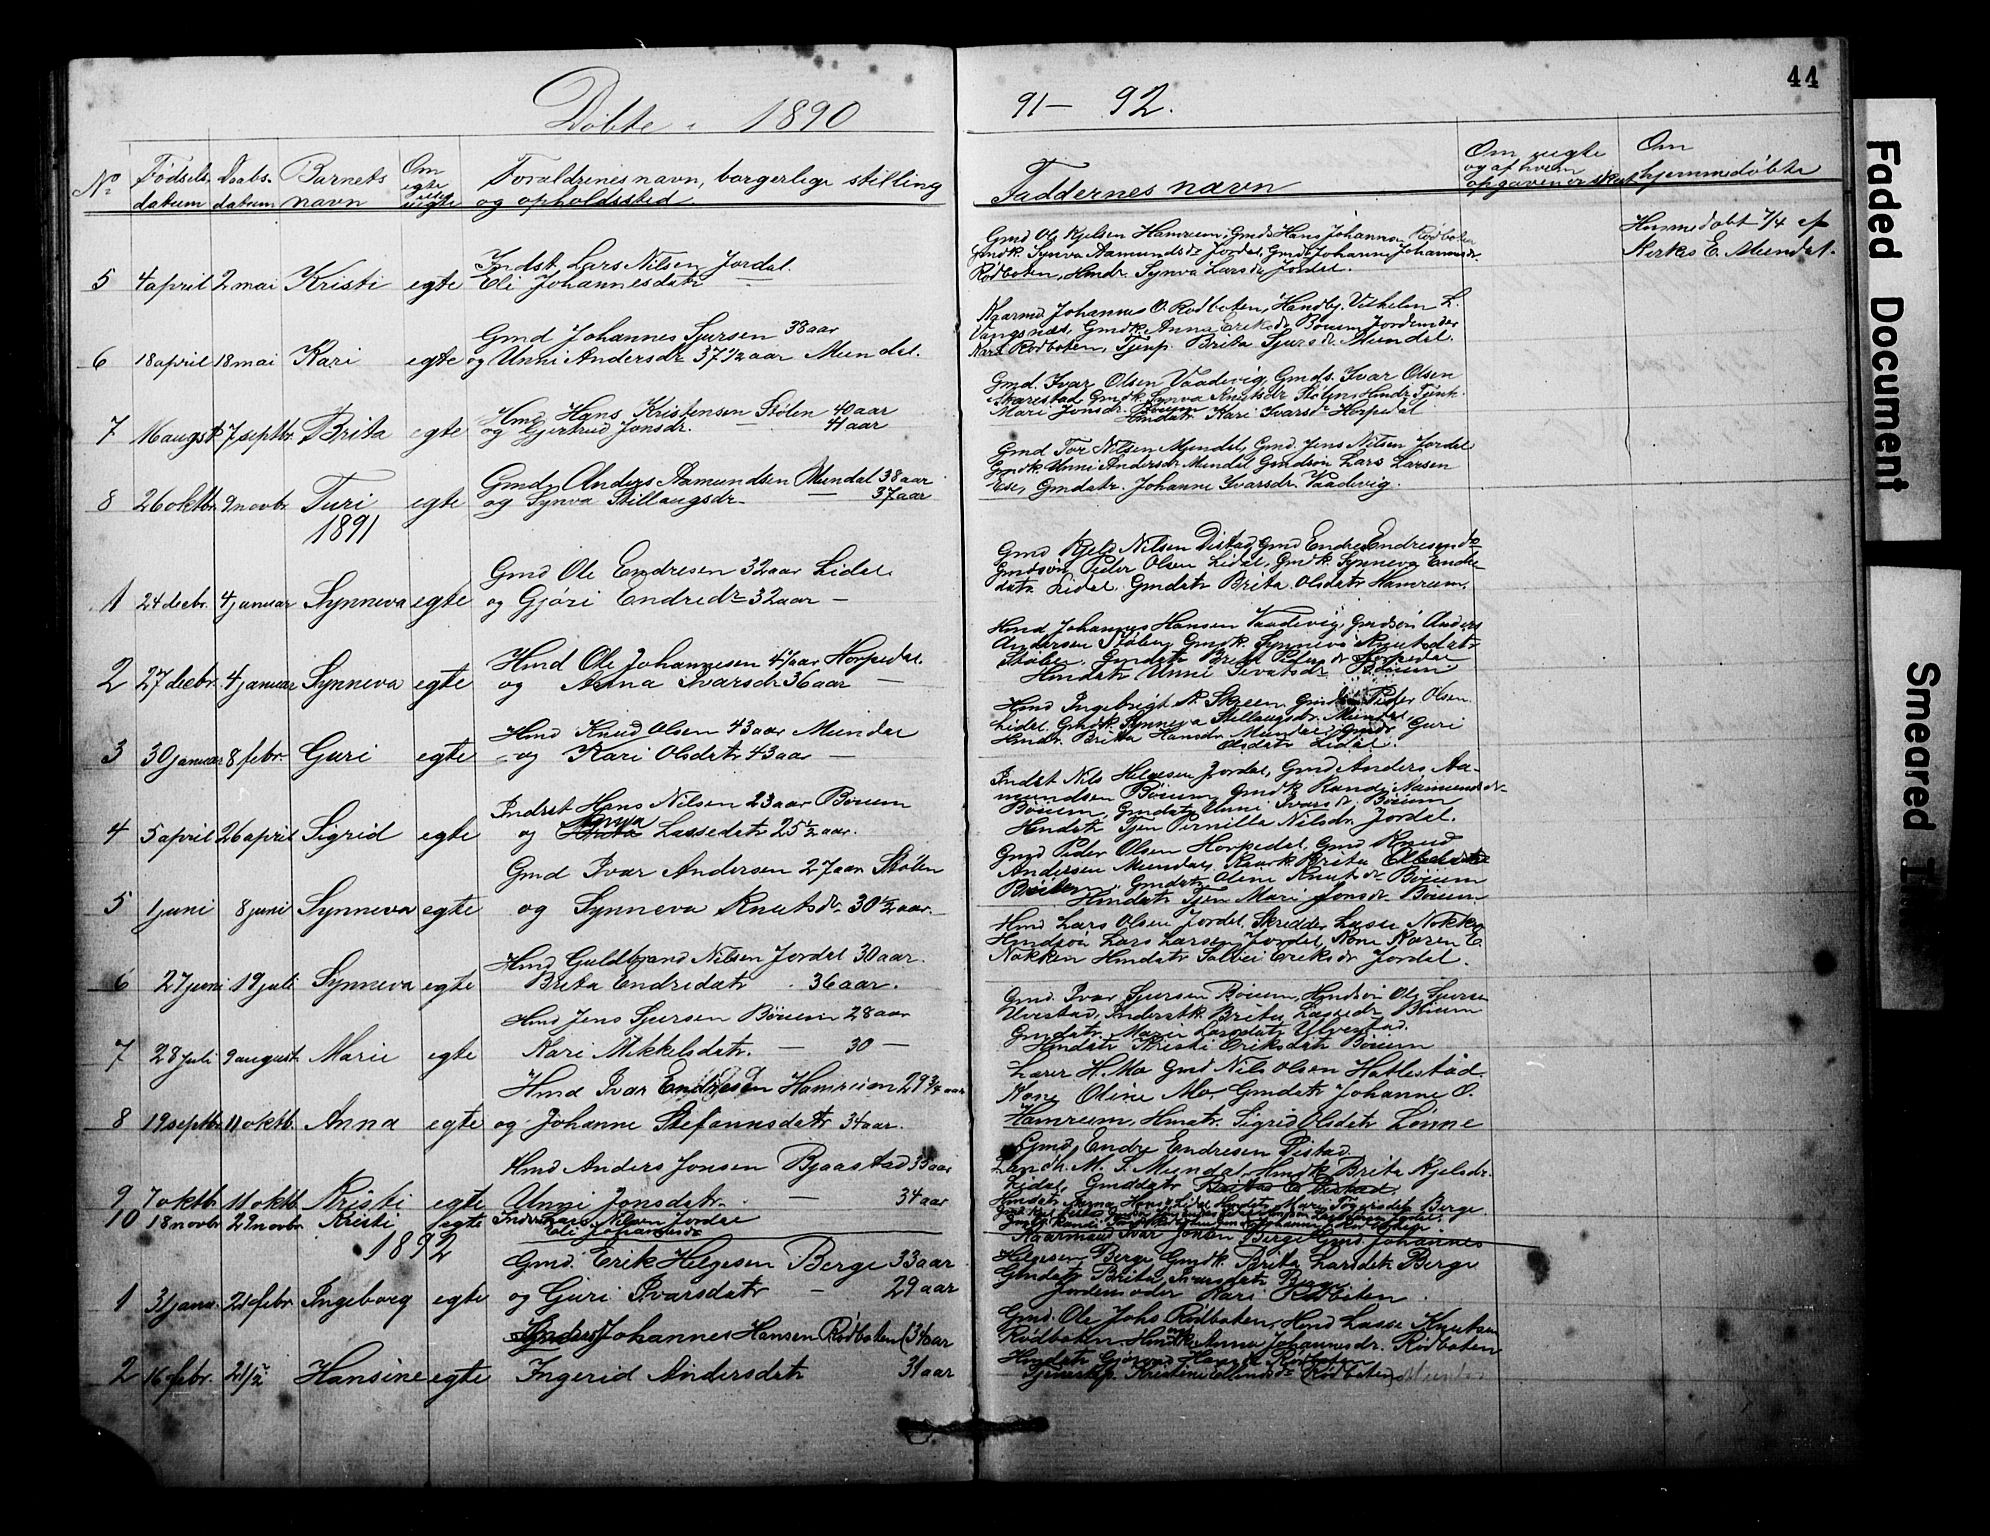 44
Döbte 1890
91 – 92.
No
Fødsels-
datum
Daabs-
datum
Barnets
navn
Om
egte
uegte
Foraldrenes navn, borgerlige stilling
og opholdssted
Faddernes navn
Om uegte
og af hvem
opgaven er sket
Om
hjemmedøbte
5 4 april 2 mai Kristi egte
Indst. Lars Nilsen Jordal.
Eli Johannesdatr —
Gmd Ole Kjelsen Hamrum, Gmds Hans Johannes Rødboten
Gmdk. Synva Aamundsdr Jordal, Gmds Johannes Johannesdr
Rødboten, Hmdr. Synva Larsdr Jordal.
Hjemmedøbt 7/4 af
Kirkes. E. Mundal.
6 18 april 18 mai Kari egte
Gmd Johannes Sjursen 38 aar
og Unni Andersdr 37 1/2 aar Mundal.
Kaarmd Johannes O. Rødboten, Handelsbj. Vilhelm L.
Vangsnæs, Gmdk. Anna Eriksdr Bøium Jordmoder
Kari Rødboten, Tjenp. Brita Sjursdr Mundal.
7 16 augst 7 septbr. Brita egte
Hmd Hans Kristensen Stølen 40 aar
og Gjertrud Jonsdr. — 41 aar
Gmd. Ivar Olsen Vaadevig, Gmds. Ivar Olsen
Skarestad, Gmdk. Synva Knutsdr Stølen, Hmdr Tjenp.
Mari Jonsdr. Bøium
Hmdatr Kari Ivarsdr Horpedal
8 26 oktbr. 9 novbr Turi egte
Gmd. Anders Aamundsen Mundal 38 aar
og Synva Stillaugsdr — 37 aar
Gmd Tor Nilsen Mundal, Gmd. Jens Nilsen Jordal
Gmdk. Unni Andersdr Mundal Gmdsøn Lars Larsen
Ese, Gmdatr. Johanne Ivarsdr. Vaadevig.
1891
1 24 decbr. 4 januar Synneva egte
Gmd Ole Endresen 32 aar Lidal
og Gjøri Endredr 32 aar —
Gmd Kjeld Nilsen Distad, Gmd Endre Endresen do
Gmdsøn Peder Olsen Lidal, Gmdk. Synneva Endre-
datr Lidal, Gmdatr Brita Olsdatr Hamrum.
2 27 decbr. 4 januar Synneva egte
Hmd Ole Johannesen 41 aar Horpedal.
og Anna Ivarsdr 36 aar —
Hmd Johannes Hansen Vaadevig, Gmdsøn Anders
Andersen Stølen, Gmdk. Synneva Knutsdatr
Stølen. Gmdatr Brita Pedersdr Horpedal
Hmdatr Unni Sivatsdr Bøium
3 30 januar 8 febr. Guri egte
Hmd Knud Olsen 43 aar Mundal
og Kari Olsdatr 43 aar —
Hmd Ingebrigt A. Skreen Gmdsøn Peder Olsen
Lidal Gmdk. Synneva Stillaugsdr. Mundal,
Hmdr. Britta Hansdr Mundal, Gmdr Guri
Olsdatr Lidal.
4 5 april 26 april Sigrid egte
Inderst Hans Nilsen 23 aar Bøium
og Synva Lassedatr 25 1/2 aar.
Indst Nils Helgesen Jordal, Gmd Anders Aa-
mundsen Bøium Gmdk Randi Aamundsdr.
Bøium, Gmdatr Unni Ivarsdr. Bøium
Hmdatr Tjen Pernilla Nilsdr. Jordal.
5 1 juni 8 juni Synneva egte
Gmd Ivar Andersen 27 aar Stølen
og Synneva Knutsdr. 30 1/2 aar.
Gmd Peder Olsen Horpedal, Gmd Knud
Andersen Mundal, Kaark Brita
Bøium, Gmdatr Oline Knutsdr Bøium
Hmdatr Tjen Mari Jonsdr. Bøium
6 27 juni 19 juli Synneva egte
Hmd Guldbrand Nilsen Jordal 30 aar.
Brita Endredatr . 36 aar.
Hmd Lars Olsen Jordal, Skrædder Lasse Nøkken
Hmdsøn Lars Larsen Jordal, Kone Karen E.
Nøkken Hmdatr Solvei Eriksdr Jordal.
7 28 juli 9 august. Marie egte
Hmd Jens Sjursen Bøium 28 aar
Kari Mikkelsdatr. — 30 —
Gmd. Ivar Sjursen Bøium, Hmdsøn Ole Sjursen
Ulvestad, Inderstk. Brita Lassedr Bøium
Gmdatr. Marie Larsdatr Ulvestad.
Hmdatr Kristi Eriksdatr Bøium
8 19 septbr. 11 oktb. Anna egte
Hmd Ivar Endresen Hamrum 29 3/4 aar
og Johanne Stefansdatr 34 aar.
Lærer H. Mo Gmd Nils Olsen Hatlestad.
Kone Oline Mo. Gmdatr Johanne O.
Hamrum, Hmatr. Sigrid Olsdatr Lønne
9 7 oktb. 11 oktb. Kristi egte
Hmd Anders Jonsen Bjaastad 35 aar
Unni Jonsdatr. — 34 aar
Gmd. Endre Endresen Distad
Landh. M. S. Mundal Hmdk Brita Kjelsdr.
Lidal, Gmddatr Brita E. Distad.
10 18 novbr 29 novbr. Kristi egte
Inders. Lars Nilsen Jordal
Eli Johannesdr
1892
1 31 janu. 21 febr. Ingeborg egte
Gmd. Erik Helgesen Berge 33 aar
og Guri Ivarsdatr — 29 aar
Kaarmand Ivar Jonsen Berge Gmd. Johannes
Helgesen Berge Gmdk. Brita Larsdatr Berge
Gmdatr Brita Ivarsdatr Berge
Jordemoder Kari Rødboten.
2 16 febr. 21/2 Hansine egte
Johannes Hansen Rødboten (34 aar
Ingerid Andersdatr 31 aar
Gmd. Ole Johs Rødboten, Hmd Lasse Knutsen
Rødboten. Anna Johannesdr. Rødboten
Hmdatr Rødboten
Tjenestep. Kristine Ellendsdr (Rødboten)
Faded Document
Smeared